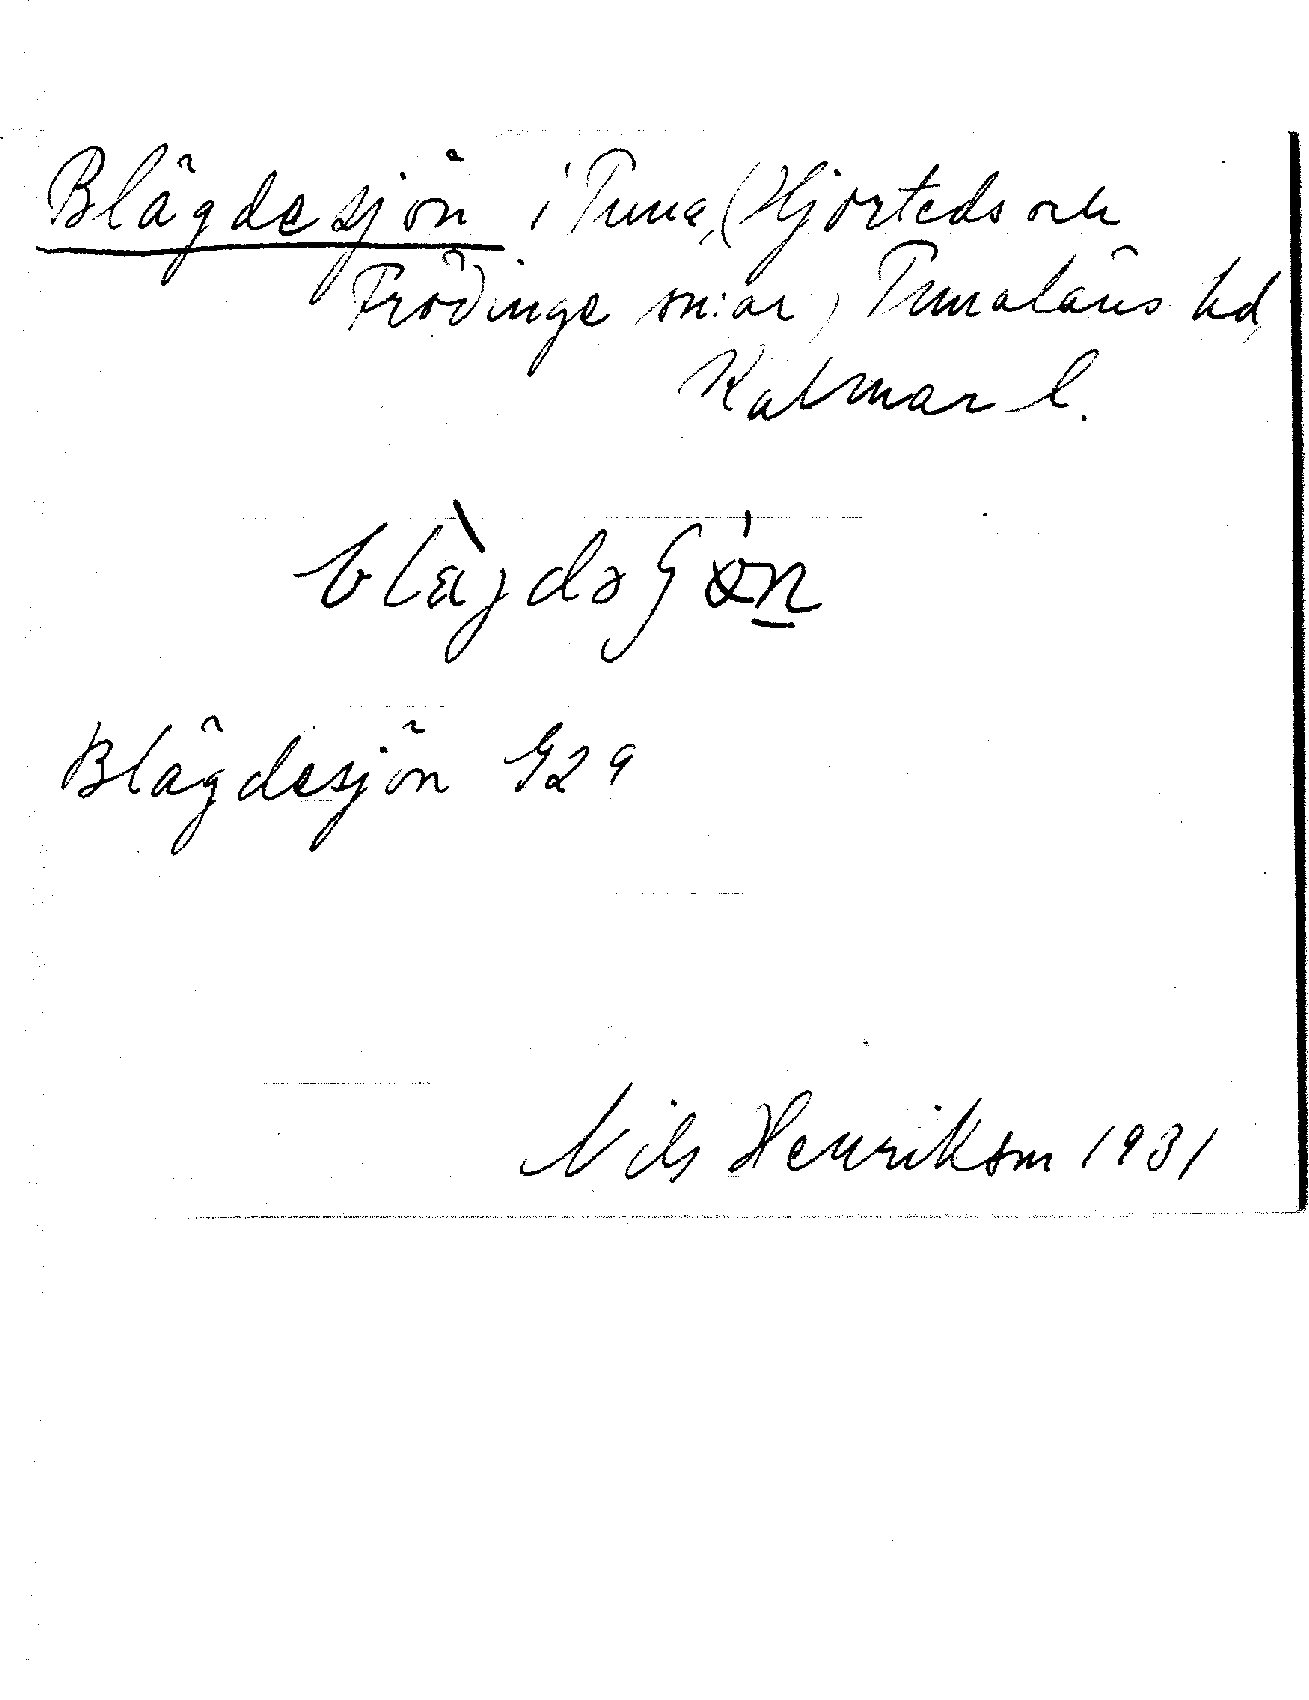 Blägdesjön i Tuna, (Hjorteds och
Frödinge sn:ar) Tunaläns hd,
Kalmar l.
Blägdesjön G29
Nils Henrikson 1931